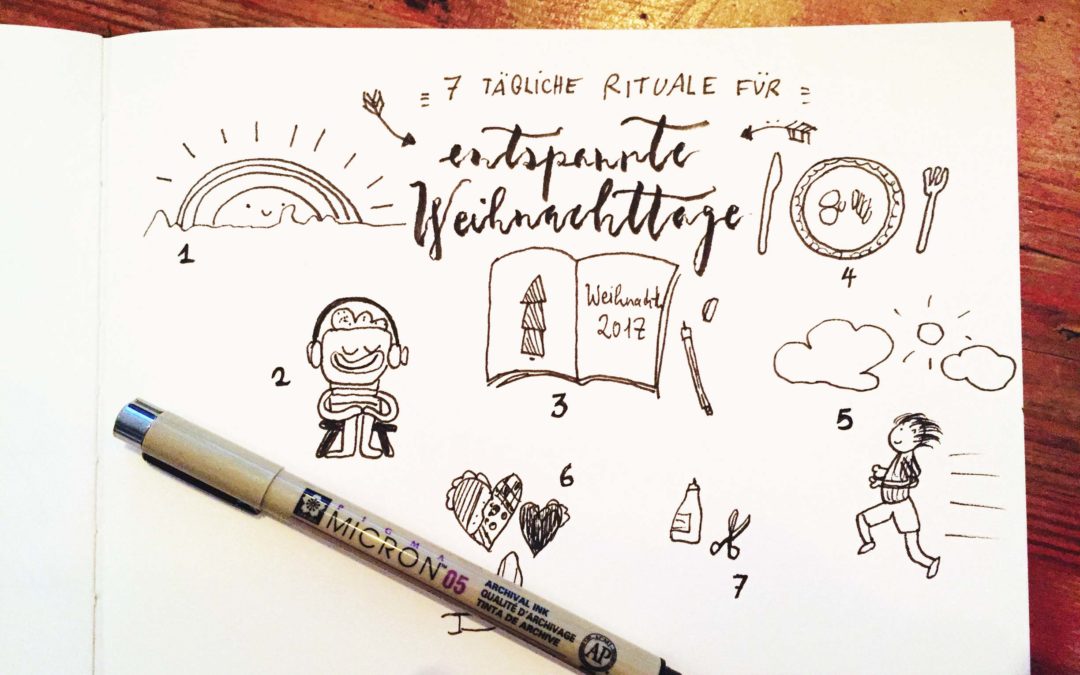 7 TÄGLICHE RITUALE FÜR
entspannte
Weihnachttage
1
4
Weihnacht
2017
2
3
5
6
7
PIGMA
MICRON™ 05
ARCHIVAL INK
QUALITÉ D'ARCHIVAGE
TINTA DE ARCHIVE
AP